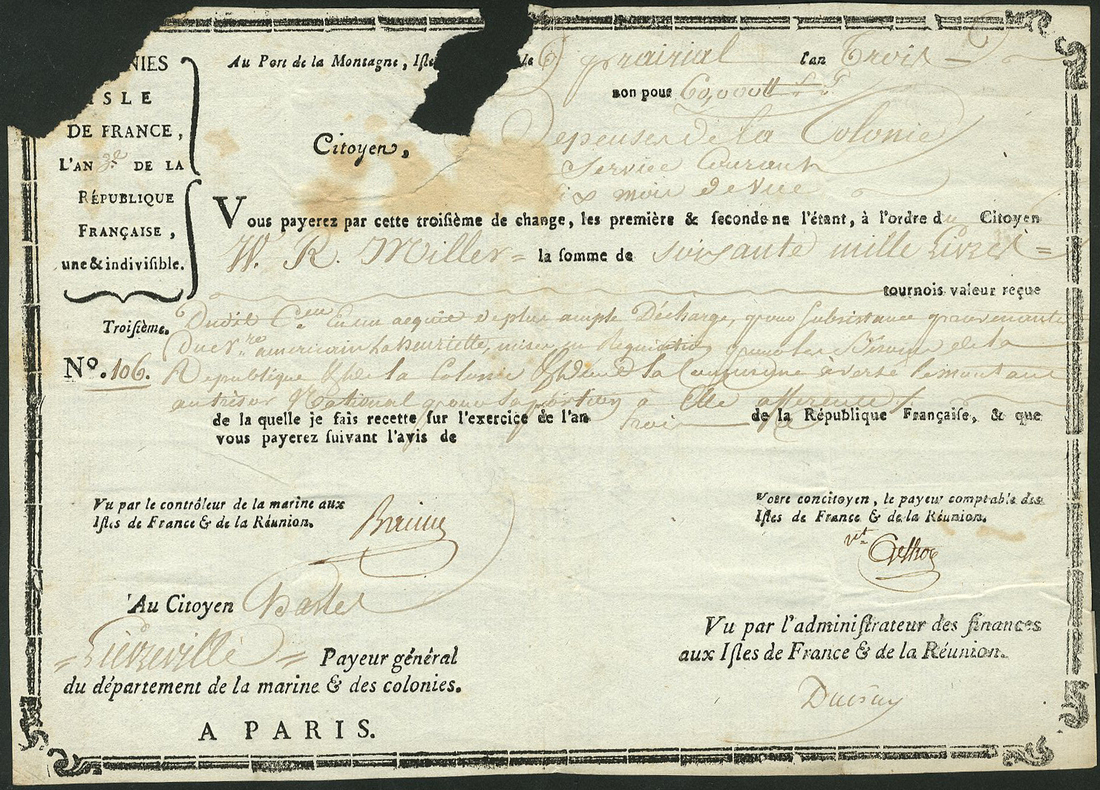 NIES
ISLE
DE FRANCE,
L'AN 3.e DE LA
RÉPUBLIQUE
FRANÇAISE,
une & indivisible.
Au Port de la Montagne, Isle le 6 prairial l'an Trois
bon pour 60,000tt
Citoyen,
Depenses de la Colonie
Service Courant
mois de vue
Vous payerez par cette troisième de change, les première & seconde ne l'étant, à l'ordre du Citoyen
W. R. Miller = la somme de soixante mille Livres =
tournois valeur reçue
Troisième.
No. 106.
Dudit C.en acquit plus ample Décharge, pour Subsistance provenante
Du américain La henriette, mise en Requisition pour les Besoins de la
République & de la Colonie & de la a versé le montant
au trésor National pour sa portion à Elle afferente
de la quelle je fais recette sur l'exercice de l'an trois de la République Française, & que
vous payerez suivant l'avis de
Vu par le contrôleur de la marine aux
Isles de France & de la Réunion.
Votre concitoyen, le payeur comptable des
Isles de France & de la Réunion.
Au Citoyen
= Payeur général
du département de la marine & des colonies.
A PARIS.
Vu par l'administrateur des finances
aux Isles de France & de la Réunion.